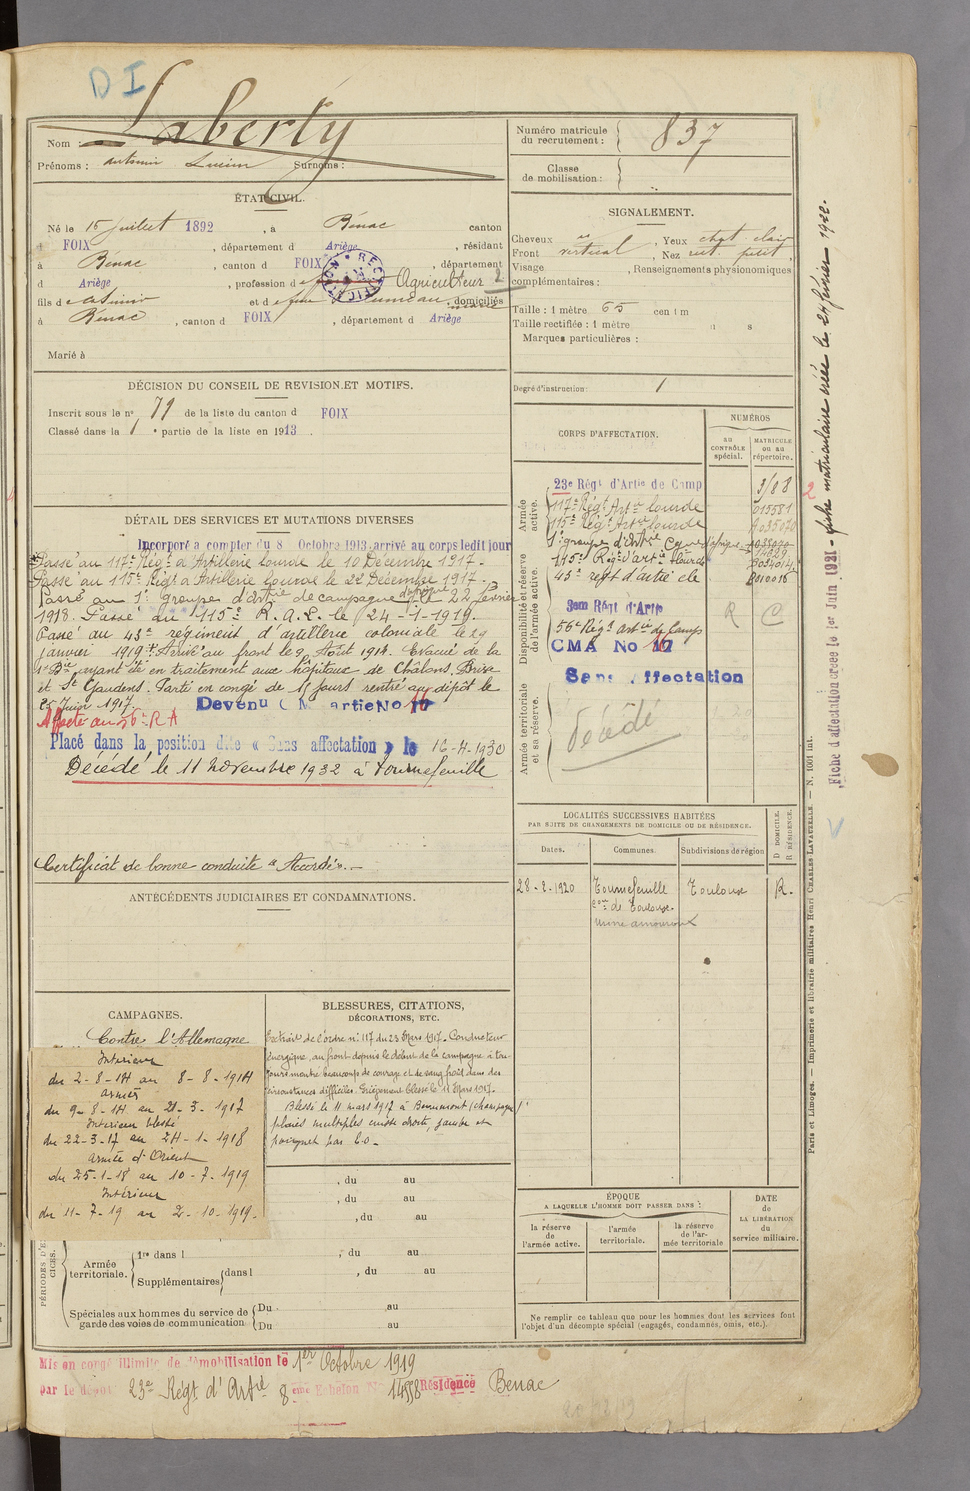 DI
Nom : Laberty
Prénoms : Antonin Lucien Surnoms :
ÉTAT CIVIL.
Né le 15 juillet 1892, à Bénac canton
d FOIX, département d Ariège, résidant
à Benac, canton d FOIX, département
d Ariège, profession d Agriculteur 2
fils d et d , domiciliés
à Bénac, canton d FOIX, département d Ariège
Marié à
DÉCISION DU CONSEIL DE REVISION ET MOTIFS.
Inscrit sous le n° 79 de la liste du canton d FOIX
Classé dans la 1e partie de la liste en 1913.
DÉTAIL DES SERVICES ET MUTATIONS DIVERSES
Incorporé a compter du 8 Octobre 1913 arrivé au corps ledit jour
Passé au 117e Régt d'Artillerie lourde le 10 Décembre 1917.
Passé au 115e Régt d'Artillerie lourde le 22 Décembre 1917.
Passé au 1er groupe d'artie de campagne d'Afrique le 22 février
1918. Passé du 115e R.A.L. le 24-1-1919.
Passé au 43e régiment d'artillerie coloniale le 29
janvier 1919. Arrivé au front le 9 Août 1914. Evacué de la
1e Bie ayant été en traitement aux hôpitaux de Châlons, Brive
et St Gaudens. Parti en congé de 15 jours rentré au dépôt le
25 Juin 1917. Devenu C M artie No 16
Affecté au 56e R A
Placé dans la position dite « Sans affectation » le 16-4-1930
Décédé le 11 novembre 1932 à Tournefeuille
Certificat de bonne conduite "Accordé".
ANTÉCÉDENTS JUDICIAIRES ET CONDAMNATIONS.
CAMPAGNES.
Contre l'Allemagne
Intérieur
du 2-8-14 au 8-8-1914
Armées
du 9-8-14 au 21-3-1917
Intérieur blessé
du 22-3-17 au 24-1-1918
Armée d'Orient
du 25-1-18 au 10-7-1919
Intérieur
du 11-7-19 au 2-10-1919.
BLESSURES, CITATIONS,
DÉCORATIONS, ETC.
Extrait de l'ordre n° 117 du 23 Mars 1917. Conducteur
énergique, au front depuis le début de la campagne a tou-
jours montré beaucoup de courage et de sang froid dans des
circonstances difficiles. Grièvement blessé le 11 Mars 1917.
Blessé le 11 mars 1917 à Beaumont (champagne)
plaies multiples cuisse droite, jambe et
poignet par é.o.
, du au
, du au
, du au
PÉRIODES D'EXERCICES.
Armée territoriale.
1re dans l , du au
Supplémentaires dans l , du au
Spéciales aux hommes du service de garde des voies de communication
Du au
Du au
Mis en congé illimité de démobilisation le 1er Octobre 1919
par le dépôt 23e Régt d'Artie 8eme Echelon No 14558 Résidence Benac
Numéro matricule du recrutement : 837
Classe de mobilisation :
SIGNALEMENT.
Cheveux , Yeux chat. clair
Front vertical, Nez rect. petit
Visage , Renseignements physionomiques
complémentaires :
Taille : 1 mètre 65 cent im
Taille rectifiée : 1 mètre
Marques particulières :
Degré d'instruction : 1
CORPS D'AFFECTATION.
NUMÉROS
AU CONTRÔLE spécial.
MATRICULE ou au répertoire.
Armée active.
23e Régt d'Artie de Camp
117e Régt Art. lourde
115e Régt Art. lourde
1er groupe d'artie Camp. d'Afrique
115e Régt d'artie lourde
43e regt d'artie cle
Disponibilité et réserve de l'armée active.
3em Régt d'Artie
56e Régt artie de Camp R C
CMA No 16
Sans affectation
Armée territoriale et sa réserve.
décédé
LOCALITÉS SUCCESSIVES HABITÉES
PAR SUITE DE CHANGEMENTS DE DOMICILE OU DE RÉSIDENCE.
Dates. Communes. Subdivisions de région D DOMICILE. R RÉSIDENCE.
28-2-1920 Tournefeuille Toulouse R.
con de Toulouse.
ÉPOQUE
A LAQUELLE L'HOMME DOIT PASSER DANS :
la réserve de l'armée active.
l'armée territoriale.
la réserve de l'armée territoriale
DATE de LA LIBÉRATION du service militaire.
Ne remplir ce tableau que pour les hommes dont les services font
l'objet d'un décompte spécial (engagés, condamnés, omis, etc.).
Fiche d'affectation créée le 1er Juin 1921 - fiche matriculaire créée le 24 février 1922.
Paris et Limoges. — Imprimerie et librairie militaires Henri CHARLES-LAVAUZELLE. — N. 1001 int.